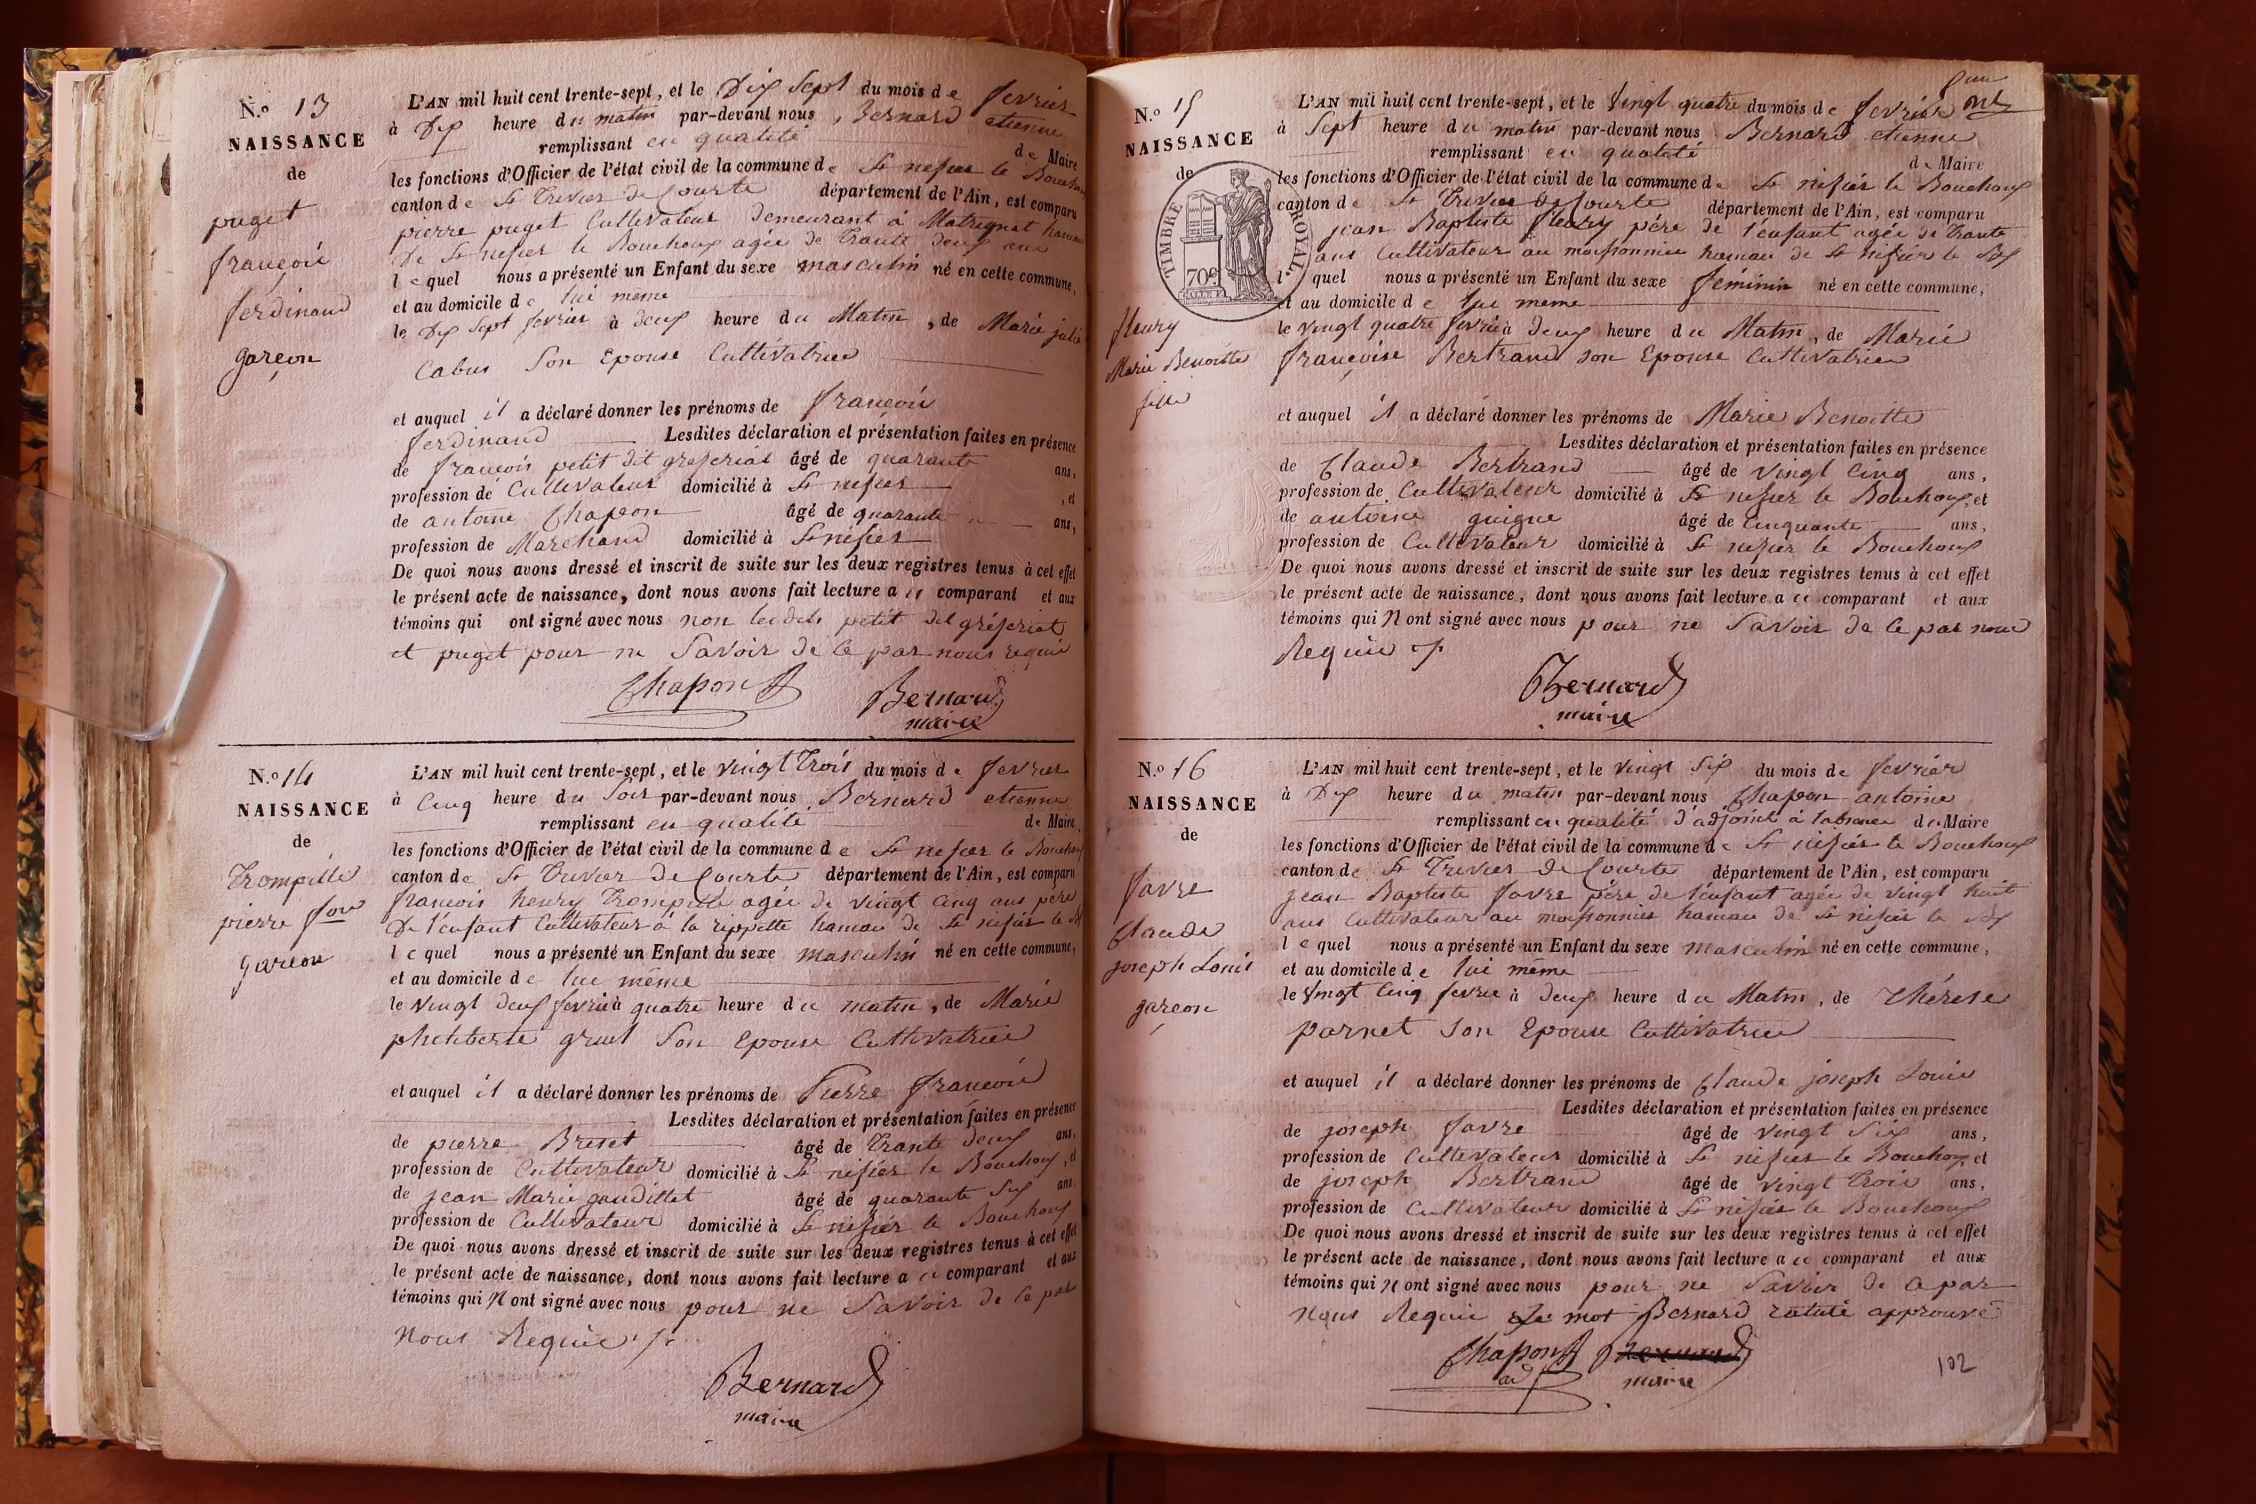 N.o 13
NAISSANCE
de
puget
françois
ferdinand
garçon
L'AN mil huit cent trente-sept, et le Dix Sept du mois de fevrier
à Dix heure du matin par-devant nous, Bernard etienne
remplissant en qualité de Maire
les fonctions d'Officier de l'état civil de la commune de St nisier le Bouchoux
canton de St Trivier de Courte département de l'Ain, est comparu
pierre puget Cultivateur demeurant à Matrignat hameau
de St nisier le Bouchoux agée de Trante deux ans
lequel nous a présenté un Enfant du sexe masculin né en cette commune,
et au domicile de lui meme
le Dix Sept fevrier à deux heure du Matin, de Marie julie
Cabus Son Epouse Cultivatrice
et auquel il a déclaré donner les prénoms de françois
ferdinand Lesdites déclaration et présentation faites en présence
de françois petit dit greferiat âgé de quarante ans,
profession de Cultivateur domicilié à St nisier, et
de antoine Chapon âgé de quarante ans,
profession de Marchand domicilié à St nisier
De quoi nous avons dressé et inscrit de suite sur les deux registres tenus à cet effet
le présent acte de naissance, dont nous avons fait lecture a ce comparant et aux
témoins qui ont signé avec nous non lesdits petit dit greferiat
et puget pour ne Savoir de Ce par nous requis
Chapon
Bernard
maire
N.o 14
NAISSANCE
de
Trompille
pierre fois
garcon
L'AN mil huit cent trente-sept, et le vingt Trois du mois de fevrier
à Cinq heure du Soir par-devant nous, Bernard etienne
remplissant en qualité de Maire
les fonctions d'Officier de l'état civil de la commune de St nisier le Bouchoux
canton de St Trivier de Courte département de l'Ain, est comparu
francois henry Trompille agée de vingt Cinq ans pere
De l'enfant Cultivateur à la rippette hameau de St nisier le Bx
lequel nous a présenté un Enfant du sexe masculin né en cette commune,
et au domicile de lui même
le vingt deux fevrier à quatre heure du matin, de Marie
philiberte gruel Son Epouse Cultivatrice
et auquel il a déclaré donner les prénoms de Pierre françois
Lesdites déclaration et présentation faites en présence
de pierre Briset âgé de Trante deux ans,
profession de Cultivateur domicilié à St nisier le Bouchoux, et
de jean Marie gaudillet âgé de quarante Six ans,
profession de Cultivateur domicilié à St nisier le Bouchoux
De quoi nous avons dressé et inscrit de suite sur les deux registres tenus à cet effet
le présent acte de naissance, dont nous avons fait lecture a ce comparant et aux
témoins qui N ont signé avec nous pour ne Savoir de Ce par
nous Requis
Bernard
maire
N.o 15
NAISSANCE
de
TIMBRE ROYAL.
70c
fleury
Marie Benoitte
fille
L'AN mil huit cent trente-sept, et le vingt quatre du mois de fevrier
à Sept heure du matin par-devant nous Bernard etienne
remplissant en qualité de Maire
les fonctions d'Officier de l'état civil de la commune de St nisier le Bouchoux
canton de St Trivier de Courte département de l'Ain, est comparu
jean Baptiste fleury père de l'enfant agée de Trante
ans Cultivateur au moissonnier hameau de St nisier le Bx
lequel nous a présenté un Enfant du sexe féminin né en cette commune,
et au domicile de lui meme
le vingt quatre fevrier à Deux heure du Matin, de Marie
françoise Bertrand son Epouse Cultivatrice
et auquel il a déclaré donner les prénoms de Marie Benoitte
Lesdites déclaration et présentation faites en présence
de Claude Bertrand âgé de vingt Cinq ans,
profession de Cultivateur domicilié à St nisier le Bouchoux, et
de antoine guigue âgé de Cinquante ans,
profession de Cultivateur domicilié à St nisier le Bouchoux
De quoi nous avons dressé et inscrit de suite sur les deux registres tenus à cet effet
le présent acte de naissance, dont nous avons fait lecture a ce comparant et aux
témoins qui N ont signé avec nous pour ne Savoir de Ce par nous
Requis
Bernard
maire
N.o 16
NAISSANCE
de
favre
Claude
joseph Louis
garcon
L'AN mil huit cent trente-sept, et le vingt Six du mois de fevrier
à Dix heure du matin par-devant nous Chapon antoine
remplissant en qualité d'adjoint à l'absence du Maire
les fonctions d'Officier de l'état civil de la commune de St nisier le Bouchoux
canton de St Trivier de Courte département de l'Ain, est comparu
jean Baptiste favre père de l'enfant agée de vingt huit
ans Cultivateur au moissonnier hameau de St nisier le Bx
lequel nous a présenté un Enfant du sexe masculin né en cette commune,
et au domicile de lui même
le vingt Cinq fevrier à Deux heure du Matin, de Thérese
parnet Son Epouse Cultivatrice
et auquel il a déclaré donner les prénoms de Claude joseph Louis
Lesdites déclaration et présentation faites en présence
de joseph favre âgé de vingt Six ans,
profession de Cultivateur domicilié à St nisier le Bouchoux, et
de joseph Bertrand âgé de vingt Trois ans,
profession de Cultivateur domicilié à St nisier le Bouchoux
De quoi nous avons dressé et inscrit de suite sur les deux registres tenus à cet effet
le présent acte de naissance, dont nous avons fait lecture a ce comparant et aux
témoins qui N ont signé avec nous pour ne Savoir de Ce par
nous Requis Le mot Bernard raturé approuvé
Chapon Bernard
ad maire
102